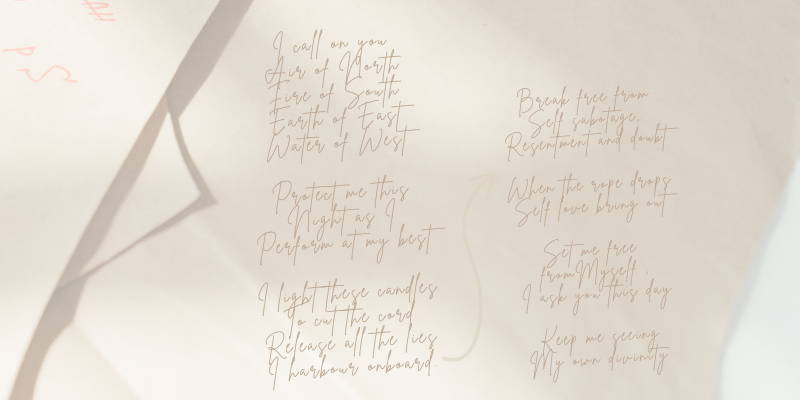 I call on you
Air of North
Fire of South
Earth of East
Water of West
Protect me this
Night as I
Perform at my best
I light these candles
To cut the cord
Release all the lies
I harbour onboard.
Break free from
Self sabotage,
Resentment and doubt
When the rope drops
Self love bring out
Set me free
fromMyself,
I ask you this day
Keep me seeing
My own divinity